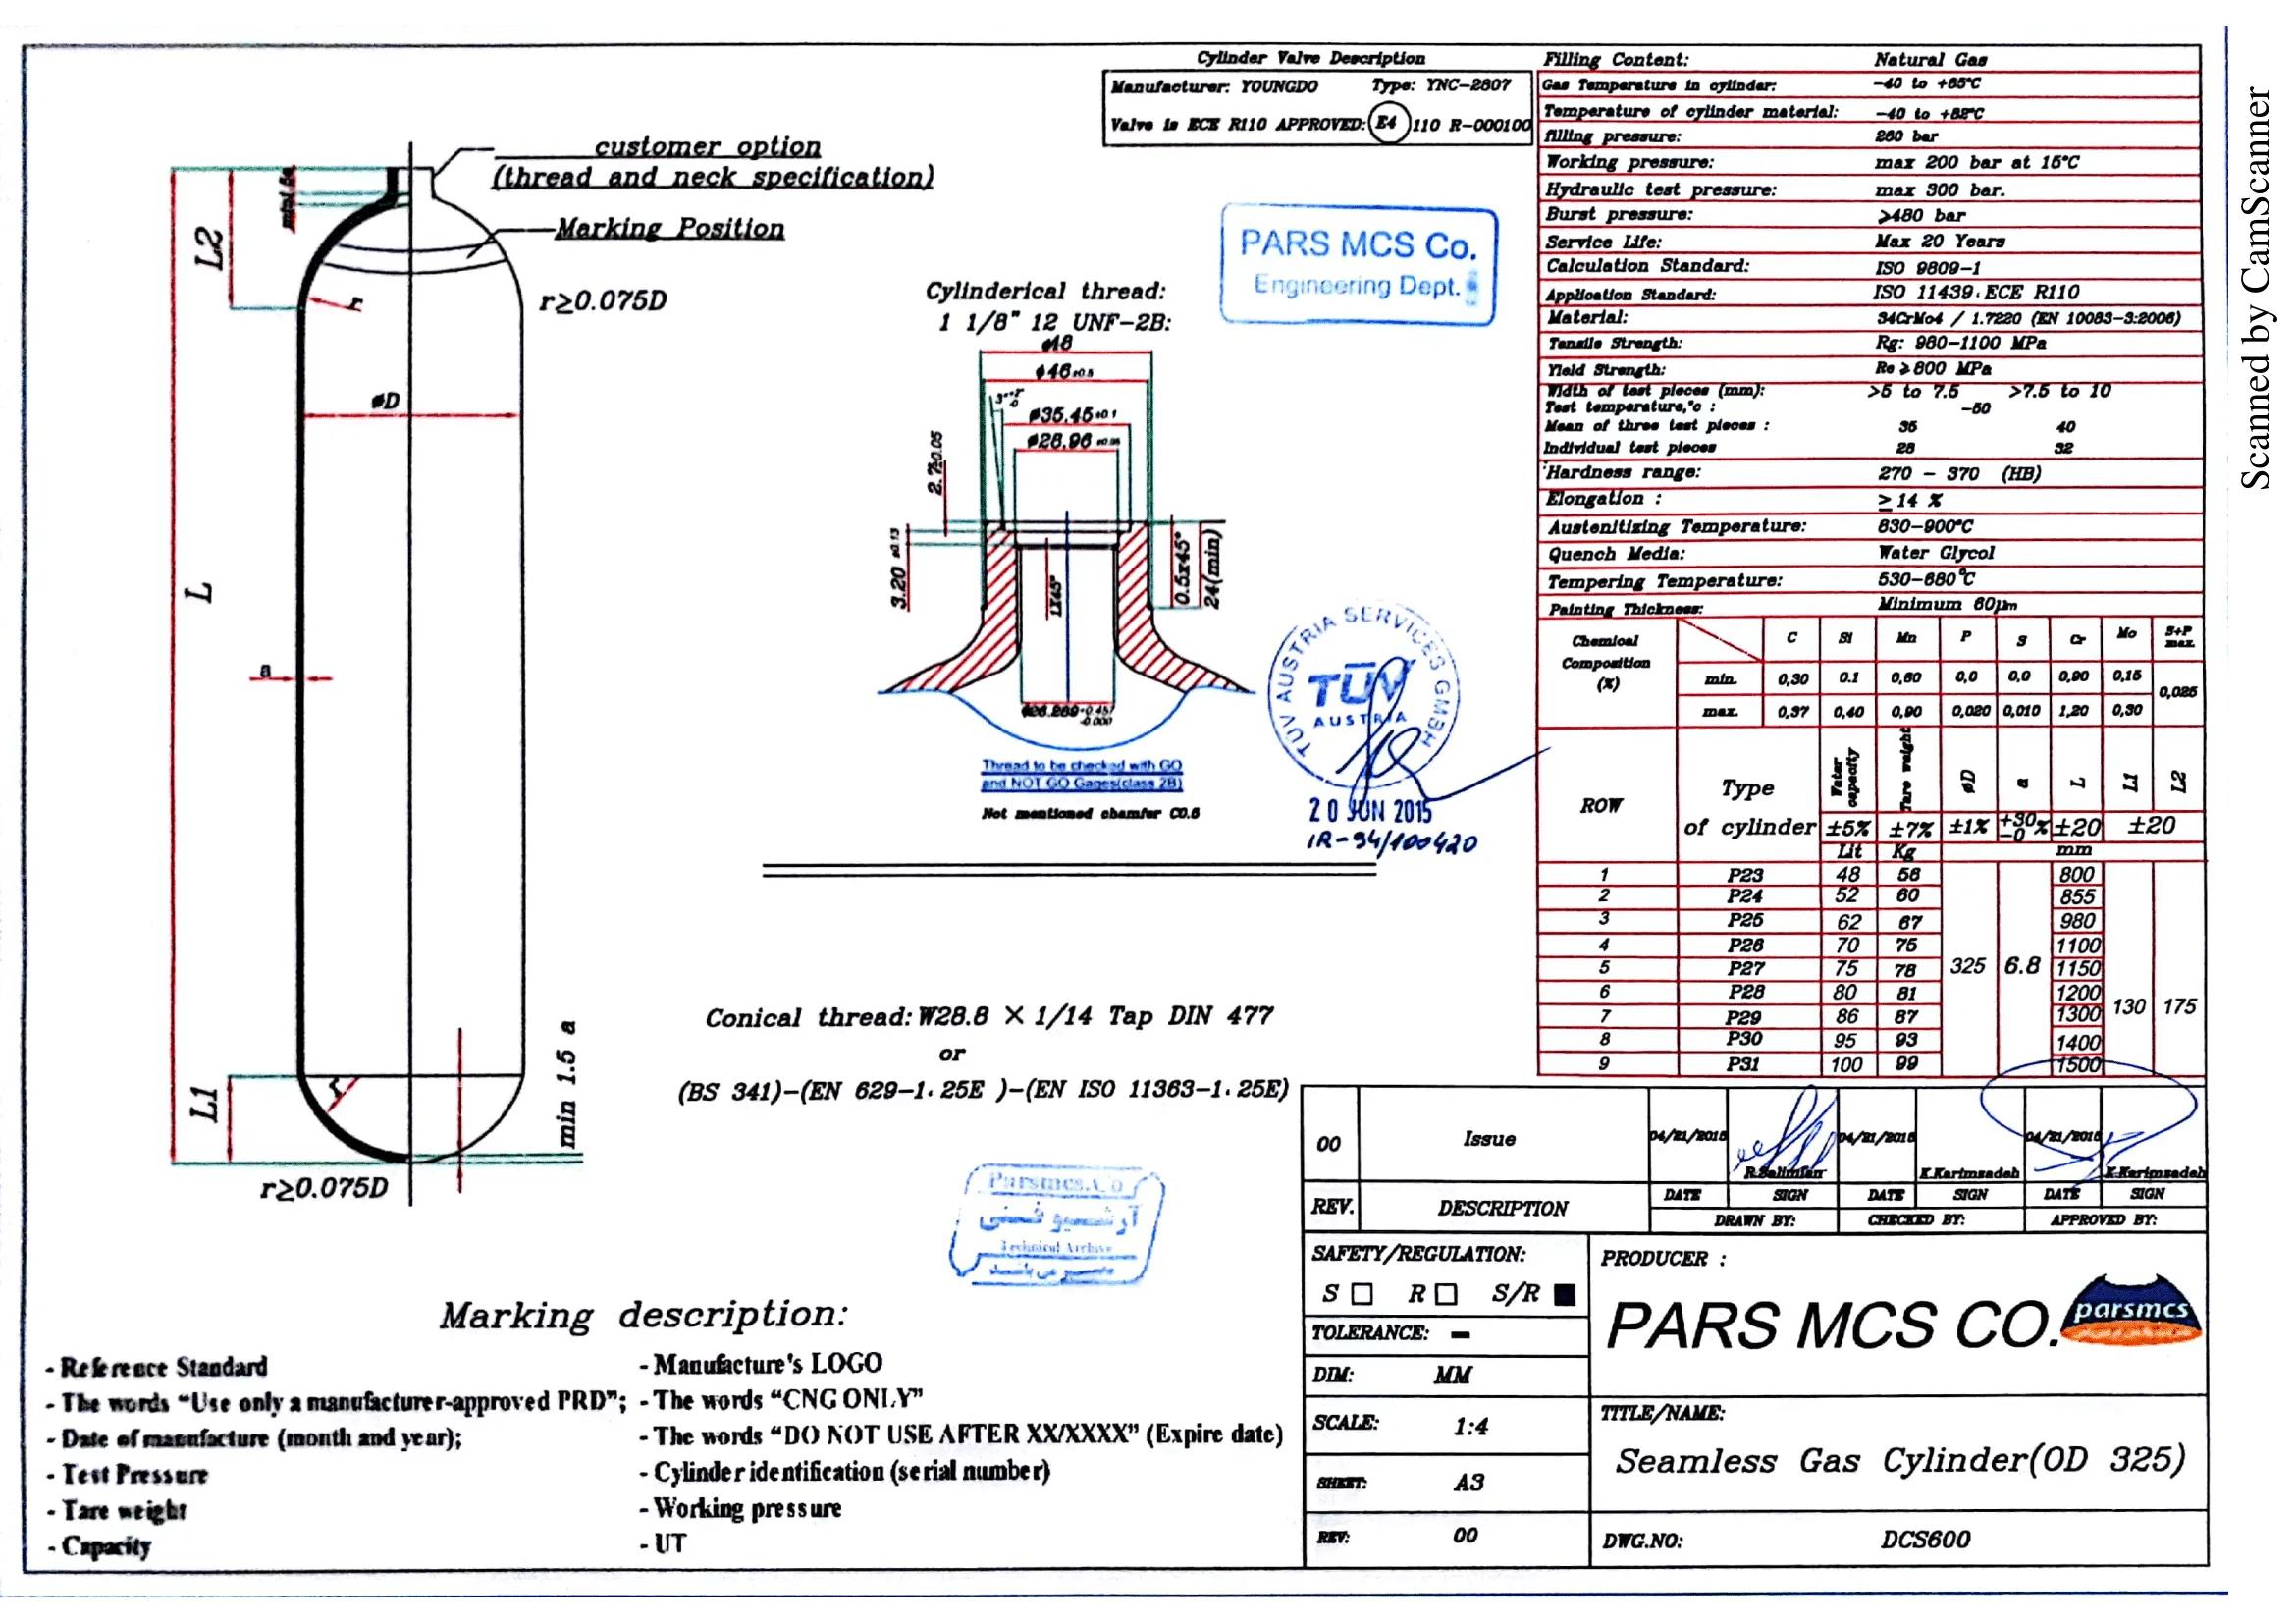 Scanned by CamScanner
Cylinder Valve Description
Manufacturer: YOUNGDO Type: YNC-2807
Valve is ECE R110 APPROVED: E4 110 R-000100
customer option
(thread and neck specification)
Marking Position
L2
r
r≥0.075D
øD
L
a
L1
r
min 1.5 a
r≥0.075D
PARS MCS Co.
Engineering Dept.
Cylinderical thread:
1 1/8" 12 UNF-2B:
ø48
ø46 ±0.5
ø35,45 ±0.1
ø28,96 ±0.05
2.7±0.05
3.20 ±0.13
1X45°
0.5x45°
24(min)
Thread to be checked with GO
and NOT GO Gages(class 2B)
Not mentioned chamfer C0.5
TÜV AUSTRIA SERVICES GMBH
TÜV
AUSTRIA
20 JUN 2015
IR-94/100420
Conical thread: W28.8 × 1/14 Tap DIN 477
or
(BS 341)-(EN 629-1, 25E )-(EN ISO 11363-1, 25E)
Parsmcs.Co
آرشیو فنی
Technical Archive
Filling Content: Natural Gas
Gas Temperature in cylinder: -40 to +65°C
Temperature of cylinder material: -40 to +82°C
filling pressure: 260 bar
Working pressure: max 200 bar at 15°C
Hydraulic test pressure: max 300 bar.
Burst pressure: ≥480 bar
Service Life: Max 20 Years
Calculation Standard: ISO 9809-1
Application Standard: ISO 11439, ECE R110
Material: 34CrMo4 / 1.7220 (EN 10083-3:2006)
Tensile Strength: Rg: 980-1100 MPa
Yield Strength: Re ≥800 MPa
Width of test pieces (mm): >5 to 7.5 >7.5 to 10
Test temperature,°c : -50
Mean of three test pieces : 35 40
Individual test pieces 28 32
Hardness range: 270 - 370 (HB)
Elongation : ≥ 14 %
Austenitizing Temperature: 830-900°C
Quench Media: Water Glycol
Tempering Temperature: 530-680°C
Painting Thickness: Minimum 60µm
Chemical Composition (%) C Si Mn P S Cr Mo S+P max.
min. 0,30 0.1 0,60 0,0 0,0 0,90 0,15 0,025
max. 0,37 0,40 0,90 0,020 0,010 1,20 0,30
ROW Type of cylinder Water capacity Tare weight øD a L L1 L2
±5% ±7% ±1% +30 -0 % ±20 ±20
Lit Kg mm
1 P23 48 56 800
2 P24 52 60 855
3 P25 62 67 980
4 P26 70 75 1100
5 P27 75 78 325 6.8 1150
6 P28 80 81 1200
7 P29 86 87 1300 130 175
8 P30 95 93 1400
9 P31 100 99 1500
00 Issue 04/21/2015 R.Salimian 04/21/2015 K.Karimzadeh 04/21/2015 K.Karimzadeh
REV. DESCRIPTION DATE SIGN DATE SIGN DATE SIGN
DRAWN BY: CHECKED BY: APPROVED BY:
SAFETY/REGULATION:
S □ R □ S/R ■
TOLERANCE: -
DIM: MM
SCALE: 1:4
SHEET: A3
REV: 00
PRODUCER :
PARS MCS CO.
parsmcs
TITLE/NAME:
Seamless Gas Cylinder(OD 325)
DWG.NO: DCS600
Marking description:
- Reference Standard
- The words “Use only a manufacturer-approved PRD”;
- Date of manufacture (month and year);
- Test Pressure
- Tare weight
- Capacity
- Manufacture's LOGO
- The words “CNG ONLY”
- The words “DO NOT USE AFTER XX/XXXX” (Expire date)
- Cylinder identification (serial number)
- Working pressure
- UT